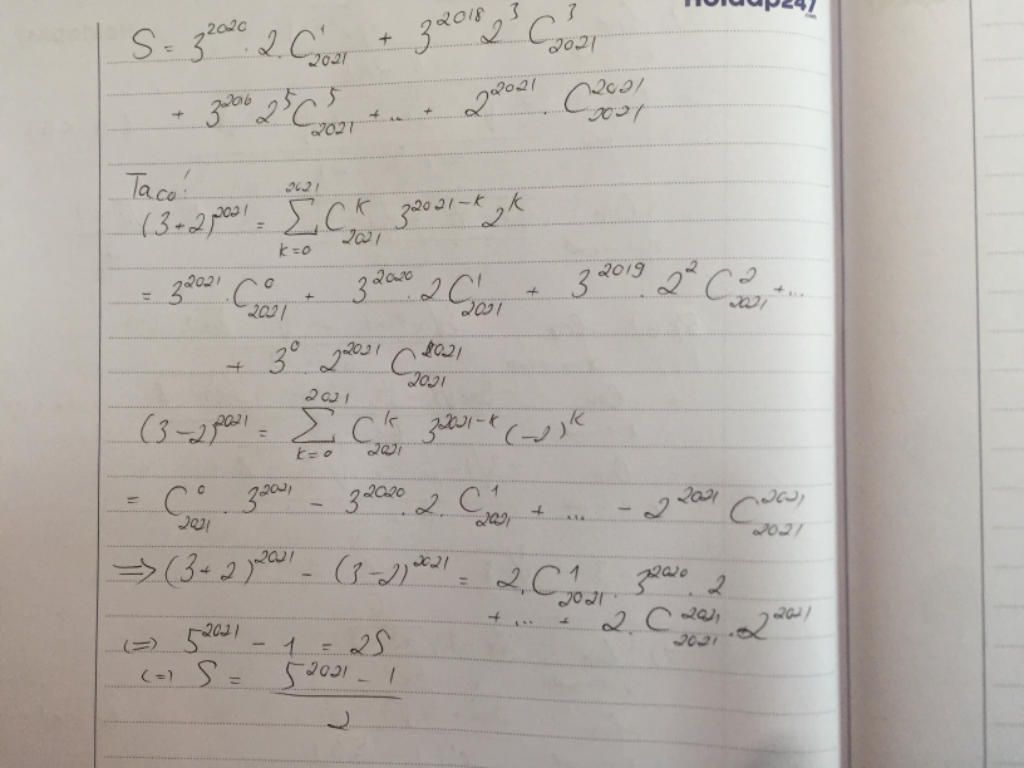 Hoidap247
.com
S = 3^2020 . 2 . C_2021^1 + 3^2018 2^3 C_2021^3
+ 3^2016 2^5 C_2021^5 + .. + 2^2021 . C_2021^2021
Ta có:
(3+2)^2021 = ∑_{k=0}^{2021} C_2021^k 3^{2021-k} 2^k
= 3^2021 . C_2021^0 + 3^2020 . 2 C_2021^1 + 3^2019 . 2^2 C_2021^2 + ...
+ 3^0 . 2^2021 C_2021^2021
(3-2)^2021 = ∑_{k=0}^{2021} C_2021^k 3^{2021-k} (-2)^k
= C_2021^0 . 3^2021 - 3^2020 . 2 . C_2021^1 + ... - 2^2021 C_2021^2021
=> (3+2)^2021 - (3-2)^2021 = 2 . C_2021^1 . 3^2020 . 2
+ ... + 2 . C_2021^2021 . 2^2021
(=) 5^2021 - 1 = 2S
(=) S = (5^2021 - 1)/2